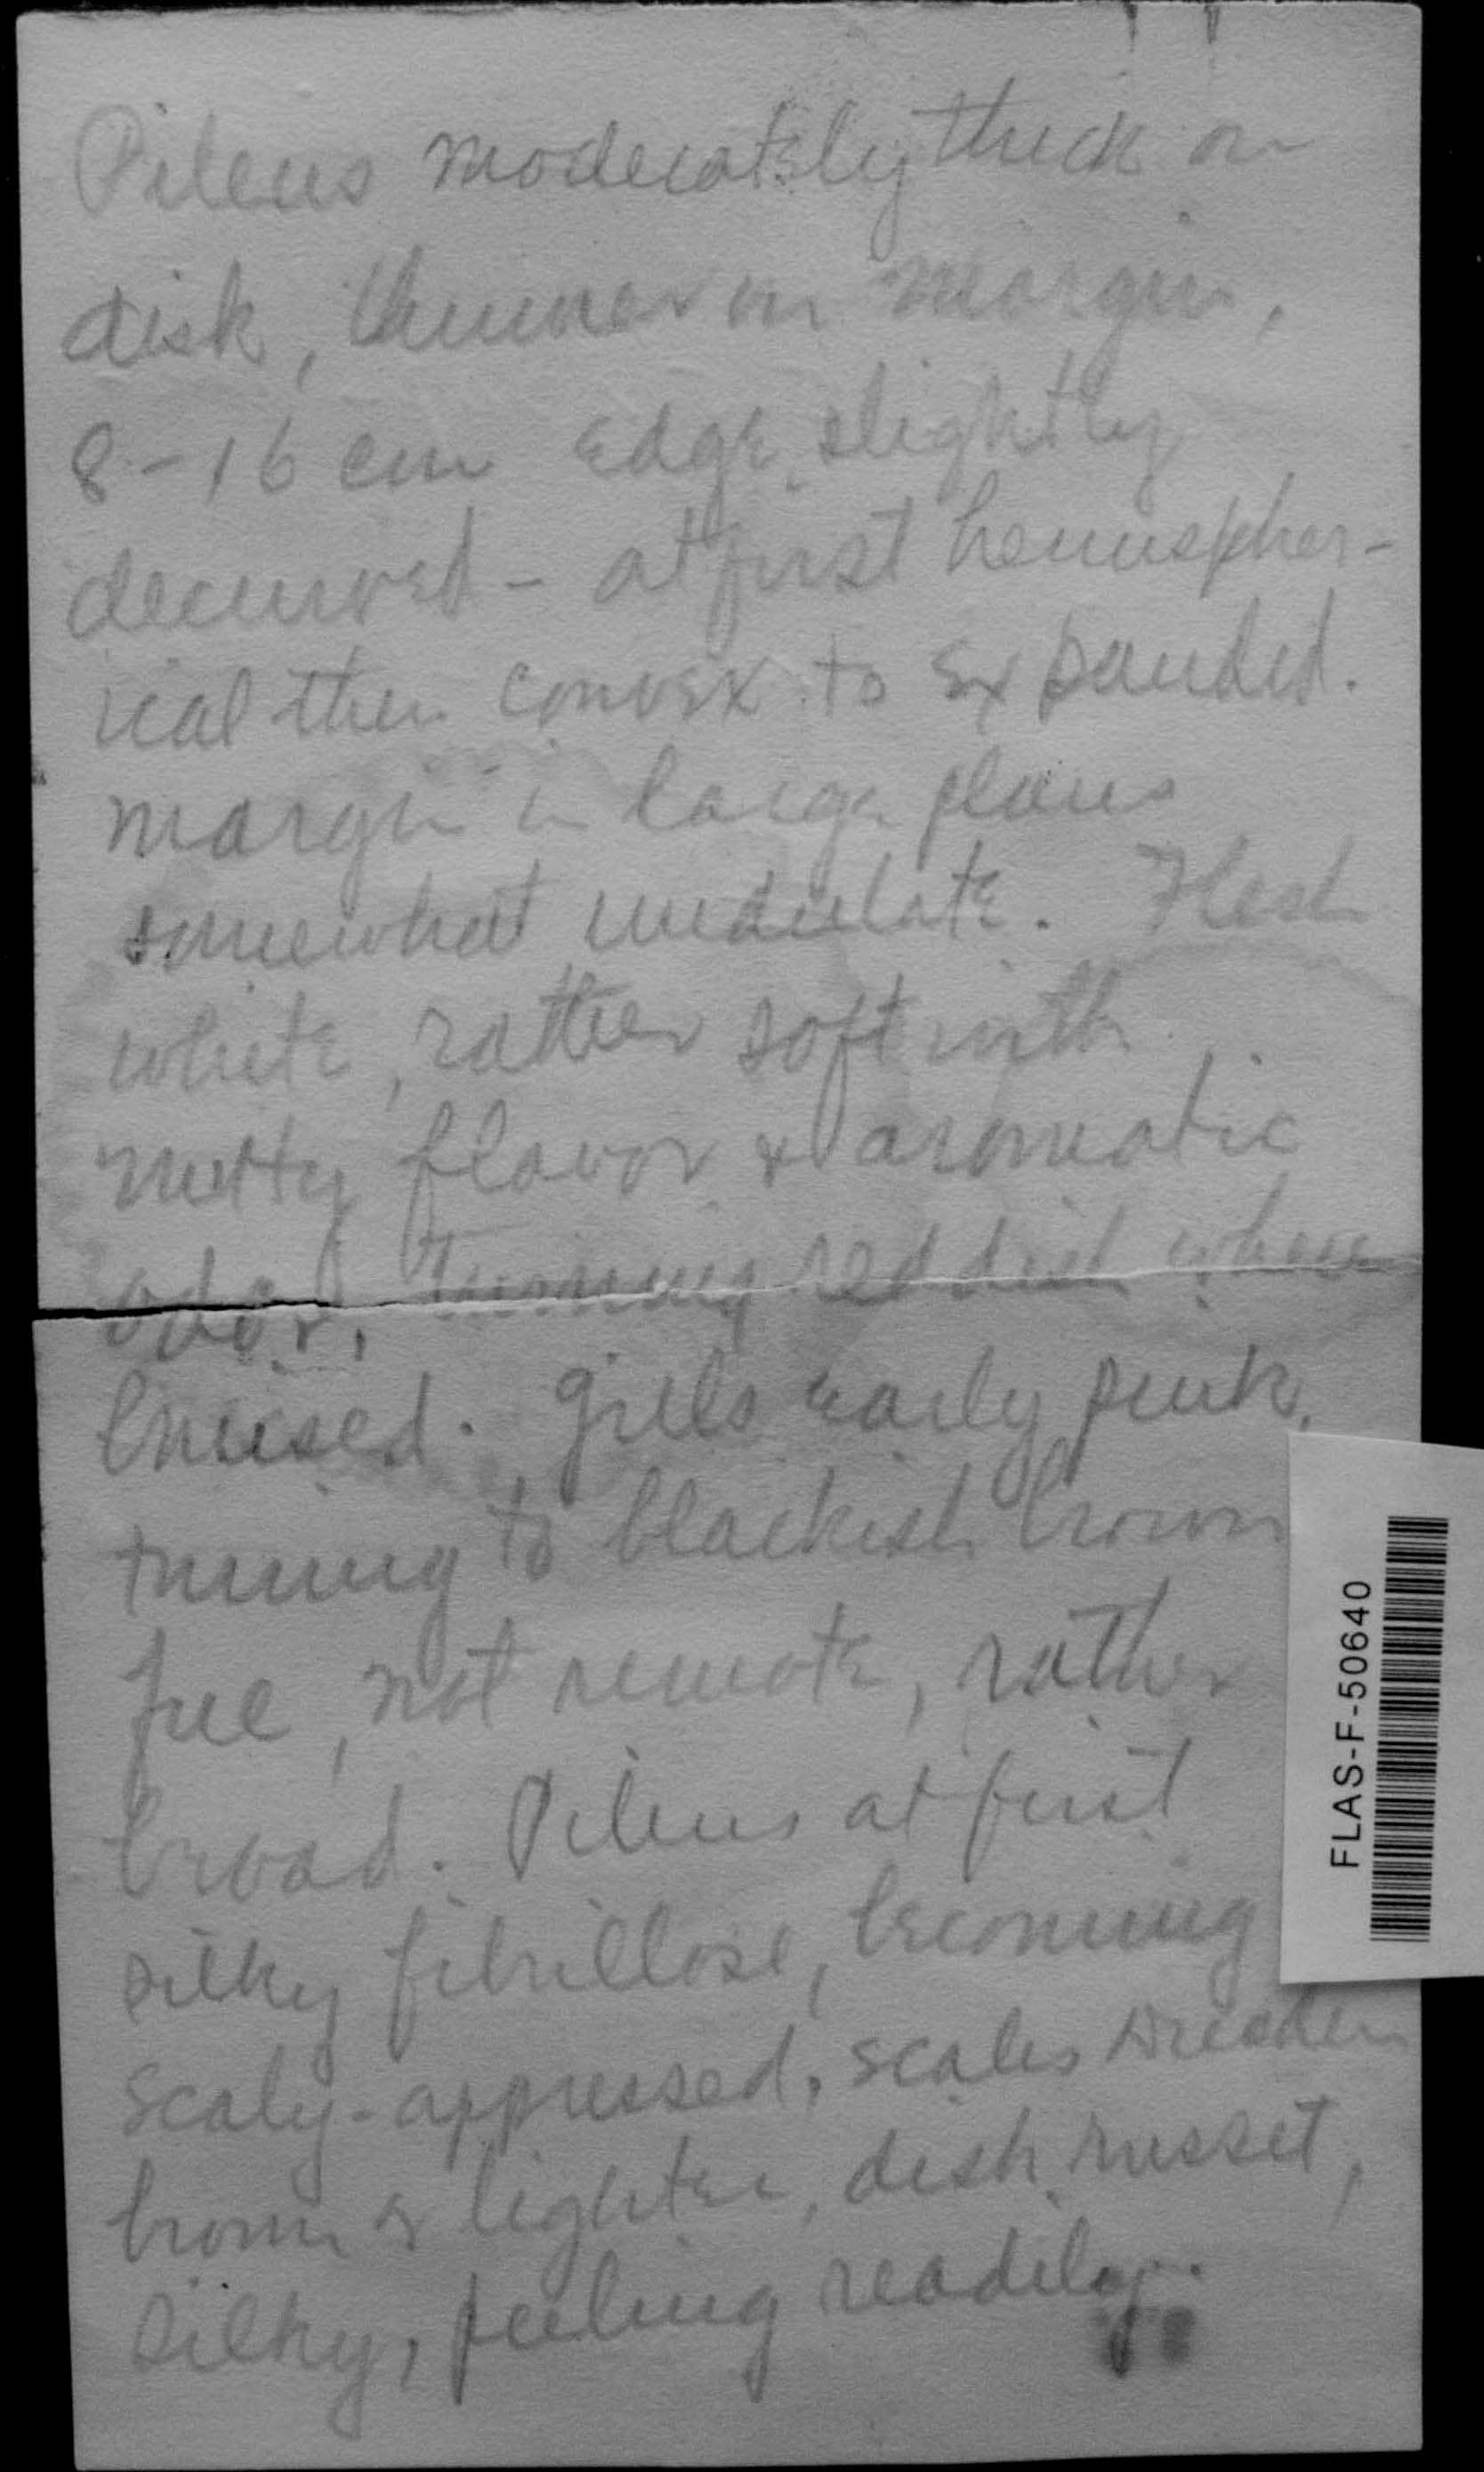 Pileus moderately thick on
disk, thinner on margin,
8-16 cm edge slightly
decurved - at first hemispher-
ical then convex to expanded.
margin in large plants
somewhat undulate. Flesh
white, rather soft with
nutty flavor & aromatic
odor, turning reddish where
bruised. gills early pink,
turning to blackish brown
free, not remote, rather
broad. Pileus at first
silky fibrillose, becoming
scaly-appressed, scales Dresden
brown & lighter, disk russet,
silky, peeling readily.
FLAS-F-50640